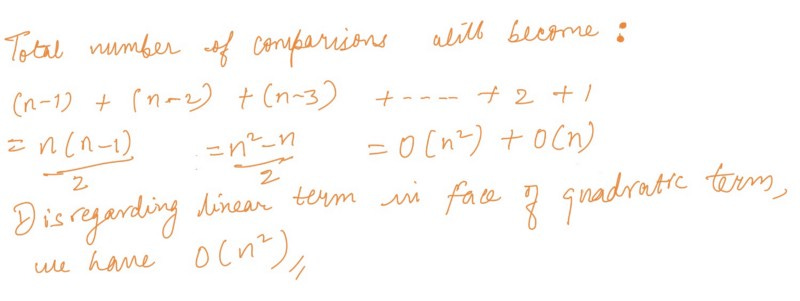 Total number of comparisons will become :
(n-1) + (n-2) + (n-3) + ---- + 2 + 1
= n(n-1)/2 = n²-n/2 = O(n²) + O(n)
Disregarding linear term in face of quadratic term,
we have O(n²)